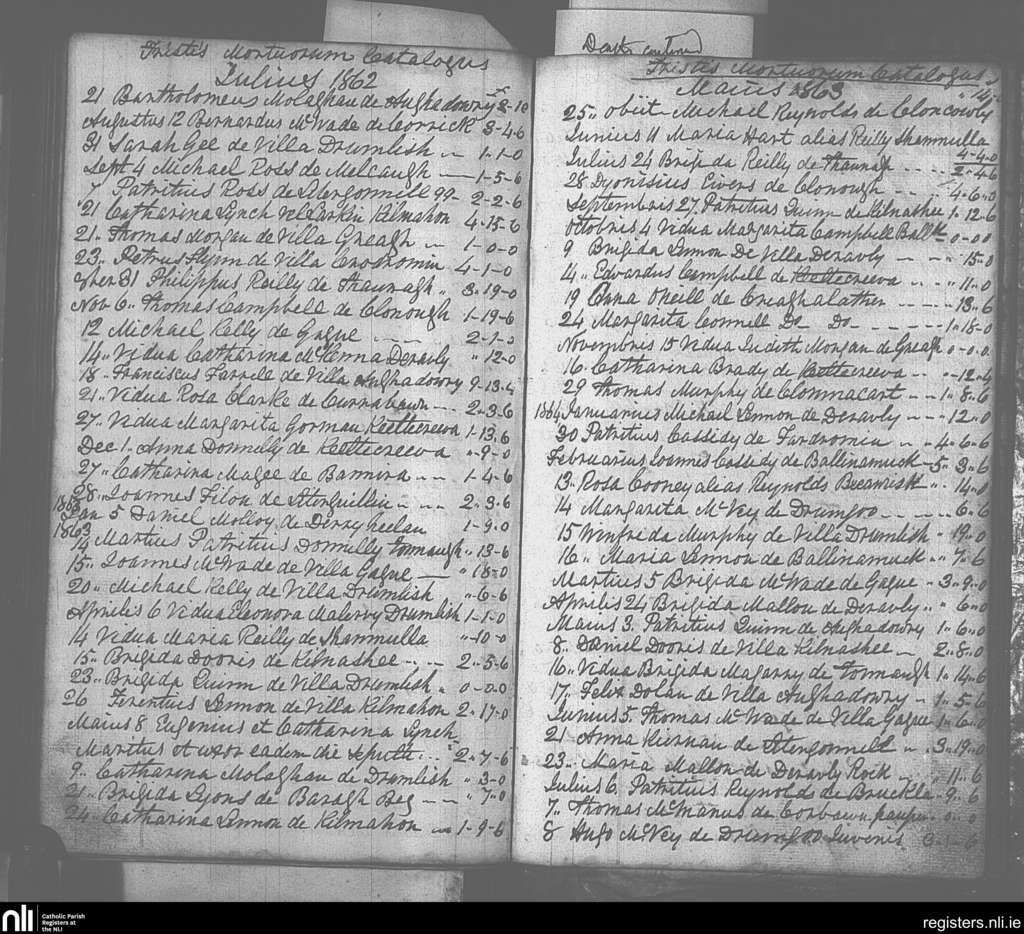 Tristis Mortuorum Catalogus
Julius 1862
21 Bartholomeus Molaghan de Aughadowry 3-10
Augustus 12 Bernardus McWade de Corrick 3-4-6
31 Sarah Gee de Villa Drumlish " 1-1-0
Sept 4 Michael Ross de Melcaugh — 1-5-6
7 Patritius Ross de 2-2-6
"21 Catharina Lynch vel Larkin Kilmahon 4-15-6
21" Thomas Morgan de Villa Greagh " 1-0-0
23" Petrus Flynn de Villa 4-1-0
31 Philippus Reilly de Thauragh " 3-19-0
Nov 6" Thomas Campbell de Clonough 1-19-6
12 Michael Kelly de Gague — — 2-1-0
14" Vidua Catharina McKenna Deravly " 12-0
18" Franciscus Farrele de Villa Aughadowry 9-13-4
21" Vidua Rosa Clarke de Currabawn - - - 2-3-6
27" Vidua Margarita Gorman Keeltecreeva 1-13-6
Dec 1" Anna Donnelly de Keeltecreeva "-9-0
27" Catharina Magee de Barnira - - 1-4-6
28" Joannes de 2-3-6
1863 Jan 5 Daniel Molloy de Derryheelan 1-9-0
1863
14 Martius Patritius Donnelly Tormaugh " 13-6
15" Joannes McWade de Villa Gague — " 18-0
20" Michael Kelly de Villa Drumlish "-6-6
Aprilis 6 Vidua Eleonora Drumlish 1-1-0
14 Vidua Maria Reilly de Shanmulla "-10-0
15" Brigida Dooris de Kilnashee - - - 2-5-6
23" Brigida Quinn de Villa Drumlish " 0-0-0
26 Terentius Lennon de Villa Kilmahon 2-17-0
Maius 8 Eugenius et Catharina Lynch
Maritus et uxor eadem die sepulti - - - 2-7-6
9" Catharina Molaghan de Drumlish " 3-0
21" Brigida Lyons de Baragh Beg — — " 7-0
24" Catharina Lennon de Kilmahon — 1-9-6
Deaths continued
Tristis Mortuorum Catalogus
Maius 1863
25" obiit Michael Reynolds de Cloncowly
Junius 11 Maria Hart alias Reilly Shanmulla
4-4-0
Julius 24 Brigida Reilly de Thauragh - - - 2-4-6
28" Dyonisius Eivers de Clonough - - 4-6-0
Septembris 27" Patritius Quinn de Kilnashee 1-12-6
Octobris 4 Vidua Margarita Campbell 0-0-0
9 Brigida Lennon De Villa Deravly - - - "15-0
14" Edvardus Campbell de Keeltecreeva - - "11-0
19 Anna Oneill de Creaghalathen - - - - 13-6
24 Margarita Connell Do Do - - - - - 1"18-0
Novembris 15 Vidua Judith Morgan de Greagh 0-0-0
16" Catharina Brady de Keeltecreeva - - "-12-4
29 Thomas Murphy de Clonmacart - - 1-8-6
1864 Januarius Michael Lennon de Deravly - - - 12-0
30 Patritius Cassidy de Fardromin " 4-6-6
Februarius Joannes Cassidy de Ballinamuck - 5-3-6
13" Rosa Cooney alias Reynolds " 14-0
14 Margarita McVey de Drumgoo - - - - " 6-6
15 Winifreda Murphy de Villa Drumlish " 19-0
16" Maria Lennon de Ballinamuck " "-7-6
Martius 5 Brigida McWade de Gague " 3-9-0
Aprilis 24 Brigida Mallon de Deravly " " 6-0
Maius 3" Patritius Quinn de Aughadowry 1-6-0
8" Daniel Dooris de Villa Kilnashee — 2-8-0
16" Vidua Brigida Magarry de Tormaugh 1-14-6
17" Felix Dolan de Villa Aughadowry " 1-5-6
Junius 5" Thomas McWade de Villa Gague 1-6-0
21 Anna Kiernan de " 3-19-0
23" Maria Mallon de Deravly Rock - - " 11-6
Julius 6" Patritius Reynolds de Bruckla - 9-6
7" Thomas McManus de Corbawn pauper 0-0
8 Hugo McVey de Drumgoo Juvenis 3-1-6
nli
Catholic Parish
Registers at
the NLI
registers.nli.ie